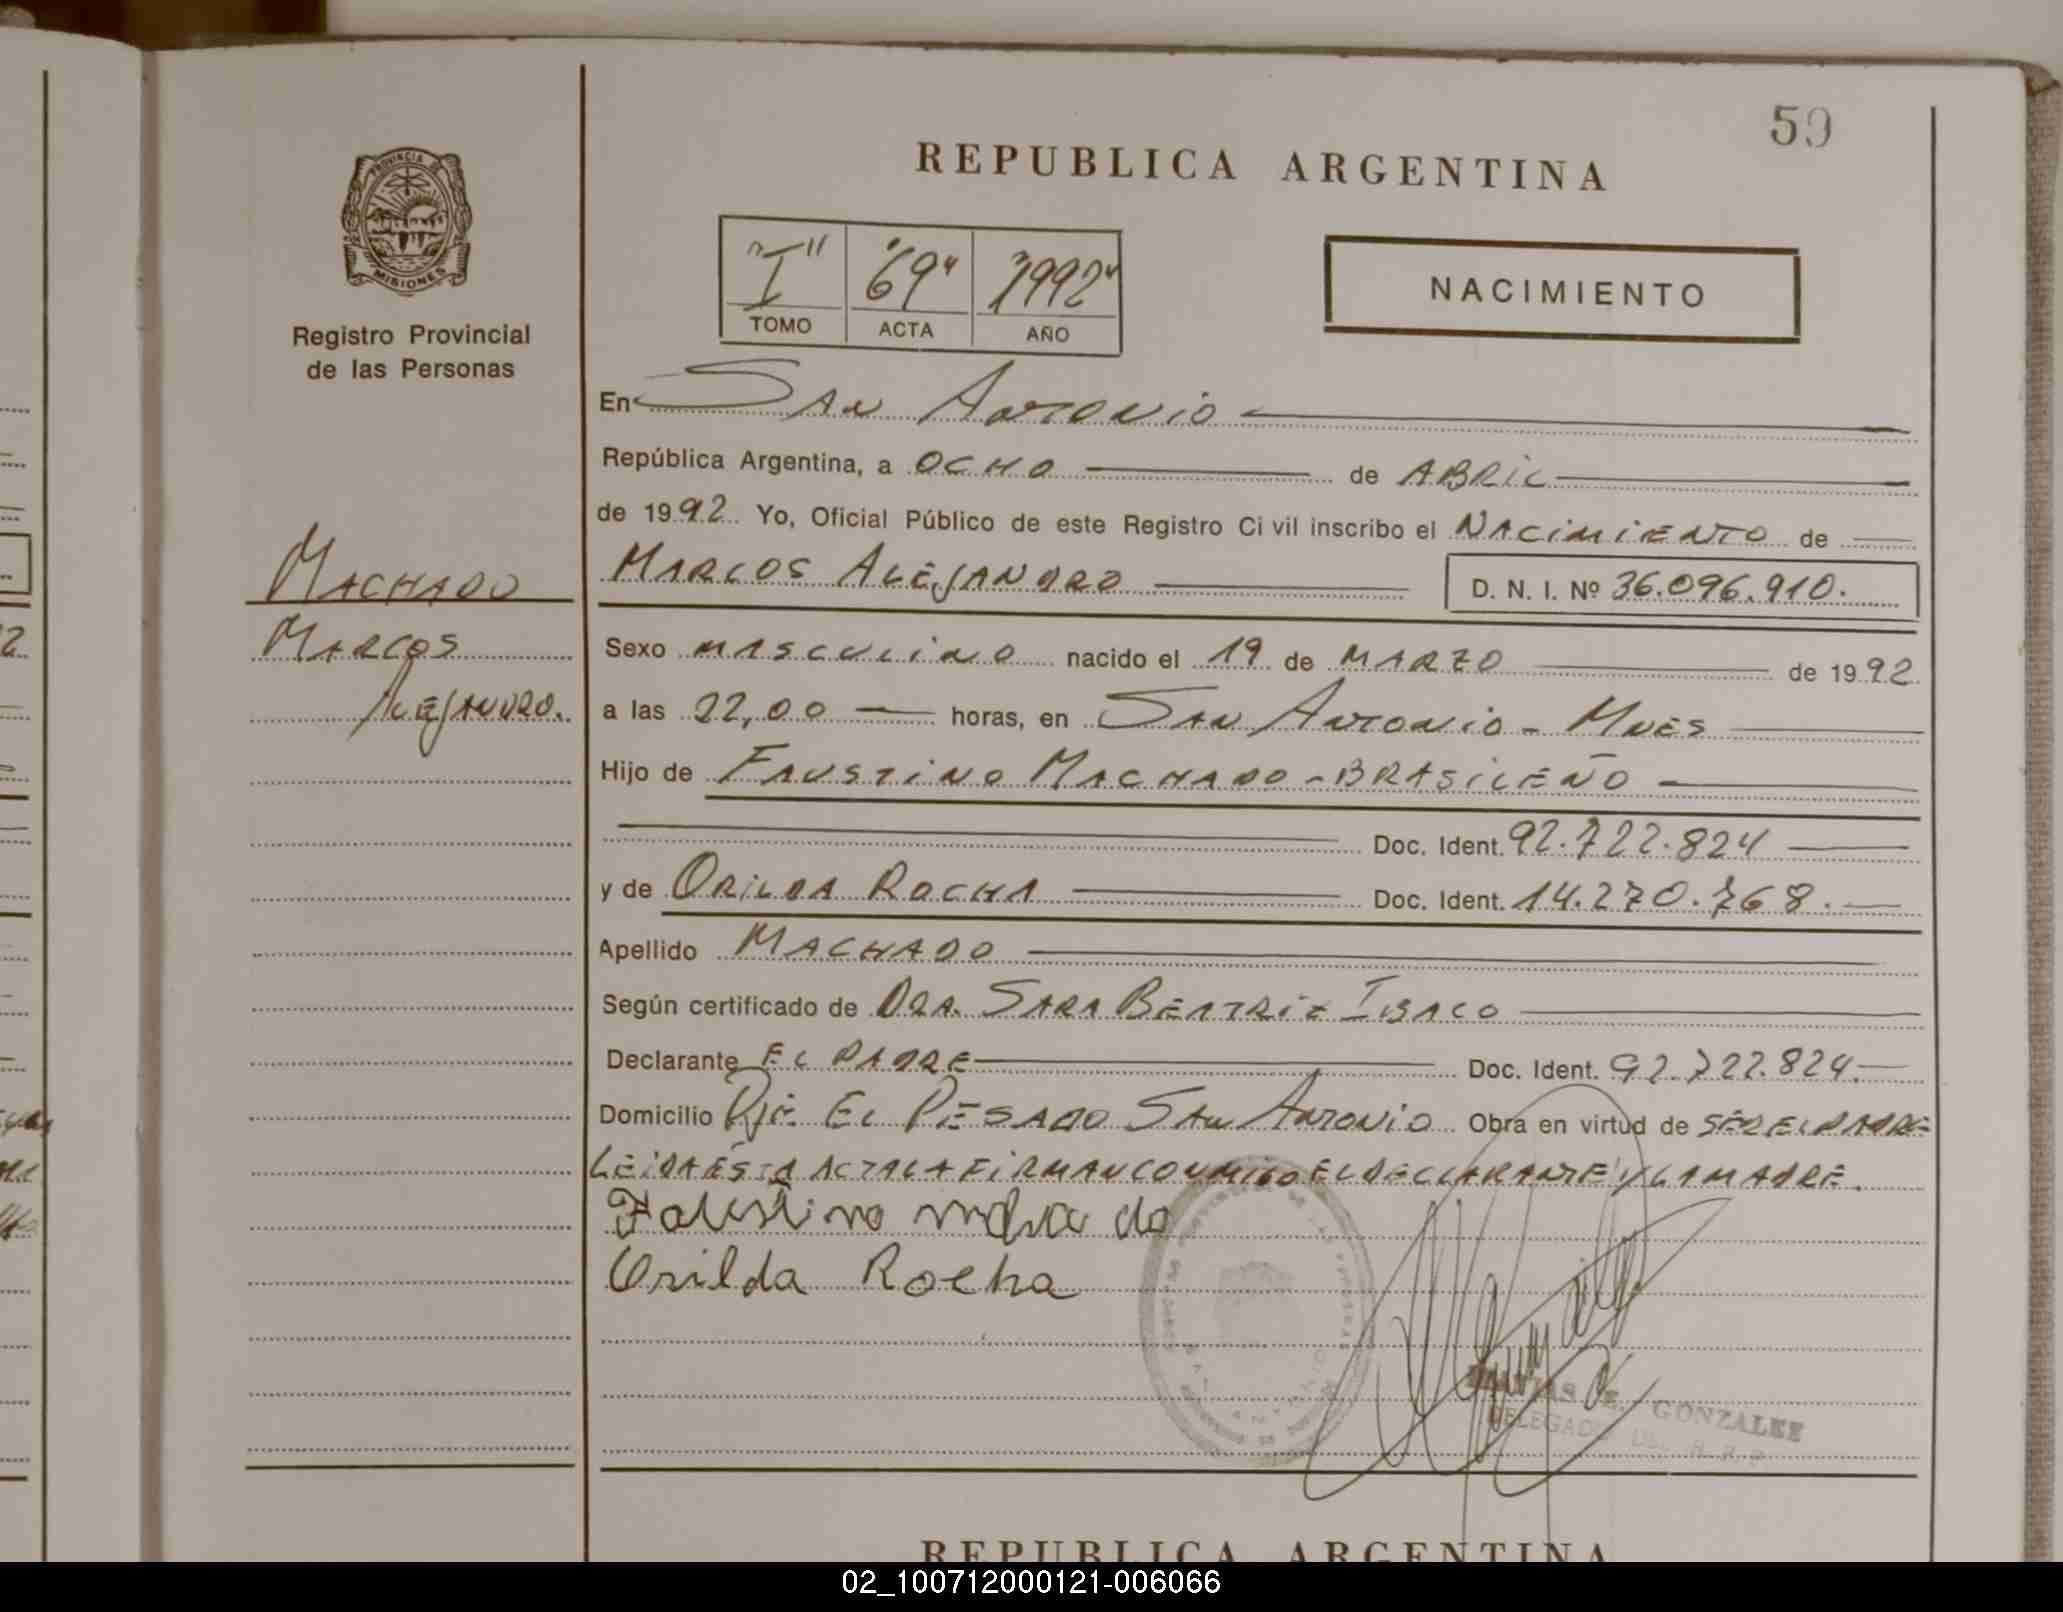 59
REPUBLICA ARGENTINA
PROVINCIA DE
MISIONES
Registro Provincial
de las Personas
"I" "69" "1992"
TOMO ACTA AÑO
NACIMIENTO
En San Antonio
República Argentina, a OCHO de ABRIL
de 1992. Yo, Oficial Público de este Registro Civil inscribo el NACIMIENTO de
MARCOS ALEJANDRO D. N. I. Nº 36.096.910.
MACHADO
MARCOS
ALEJANDRO.
Sexo MASCULINO nacido el 19 de MARZO de 1992
a las 22,00 horas, en SAN ANTONIO - MNES
Hijo de FAUSTINO MACHADO - BRASILEÑO
Doc. Ident. 92.722.824
y de ORILDA ROCHA Doc. Ident. 14.270.768.
Apellido MACHADO
Según certificado de DRA. SARA BEATRIZ IBACO
Declarante EL PADRE Doc. Ident. 92.722.824.
Domicilio Pje. EL PESADO SAN ANTONIO Obra en virtud de SER EL PADRE
LEIDA ÉSTA ACTA LA FIRMAN CONMIGO EL DECLARANTE Y LA MADRE.
Orilda Rocha
GONZALEZ
DELEGADO
REPUBLICA ARGENTINA
02_100712000121-006066